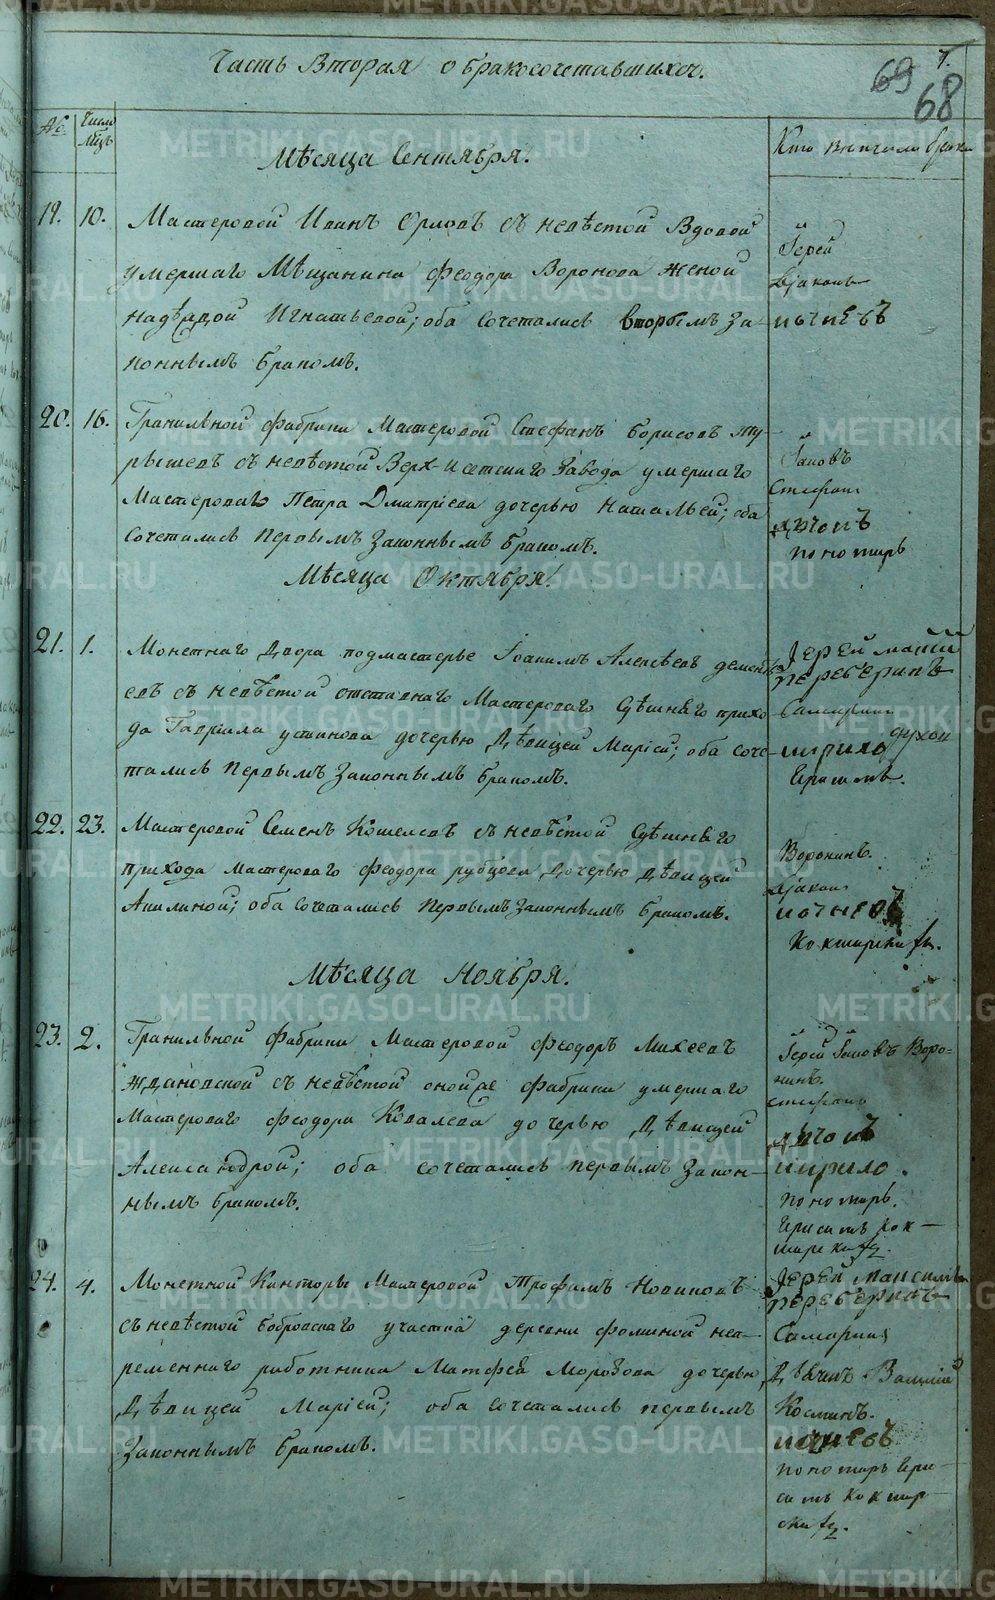 Часть Вторая о бракосочетавшихся.
7.
69
68
№
Число
Мѣсяца Сентября.
Кто венчалъ браки
19. 10. Мастеровой Иванъ Орловъ съ невѣстой Вдовой
умершаго Мѣщанина Феодора Воронова женой
надѣждой Игнатьевой; оба сочетались вторымъ за-
коннымъ бракомъ.
Іерей
Діаконъ
20. 16. Гранильной фабрики Мастеровой Стефанъ Борисовъ
съ невѣстой Верх-Исетскаго Завода умершаго
Мастероваго Петра Дмитріева дочерью Натальей; оба
сочетались первымъ Законнымъ бракомъ.
Стефанъ
пономарь
Мѣсяца Октября.
21. 1. Монетнаго Двора подмастерье Іоакимъ Алексѣевъ демен-
съ невѣстой отставнаго Мастероваго Сдѣшнего прихо-
да Гавріила устинова дочерью Дѣвицей Маріей; оба соче-
тались первымъ Законнымъ бракомъ.
Іерей
Кирило
22. 23. Мастеровой Семенъ Кошелевъ съ невѣстой Сдѣшнего
прихода мастероваго Феодора рубцова Дочерью Дѣвицей
Акилиной; оба сочетались первымъ Законнымъ бракомъ.
Воронинъ.
Діаконъ
Мѣсяца Ноября.
23. 2. Гранильной Фабрики Мастеровой Феодоръ Михеевъ
Ждановской съ невѣстой оной же Фабрики умершаго
Мастероваго Феодора Ковалева дочерью Дѣвицей
Александрой; оба сочетались первымъ Закон-
нымъ бракомъ.
Іерей Іаковъ Воро-
нинъ.
стефанъ
кирило.
пономарь.
24. 4. Монетной Канторы Мастеровой Трофимъ Новиковъ
съ невѣстой бобровскаго участка деревни Фоминой неп-
ременнаго работника Матфея Морозова дочерью,
Дѣвицей Маріей; оба сочетались первымъ
Законнымъ бракомъ.
Іерей
Самаринъ
Косминъ.
пономарь
METRIKI.GASO-URAL.RU